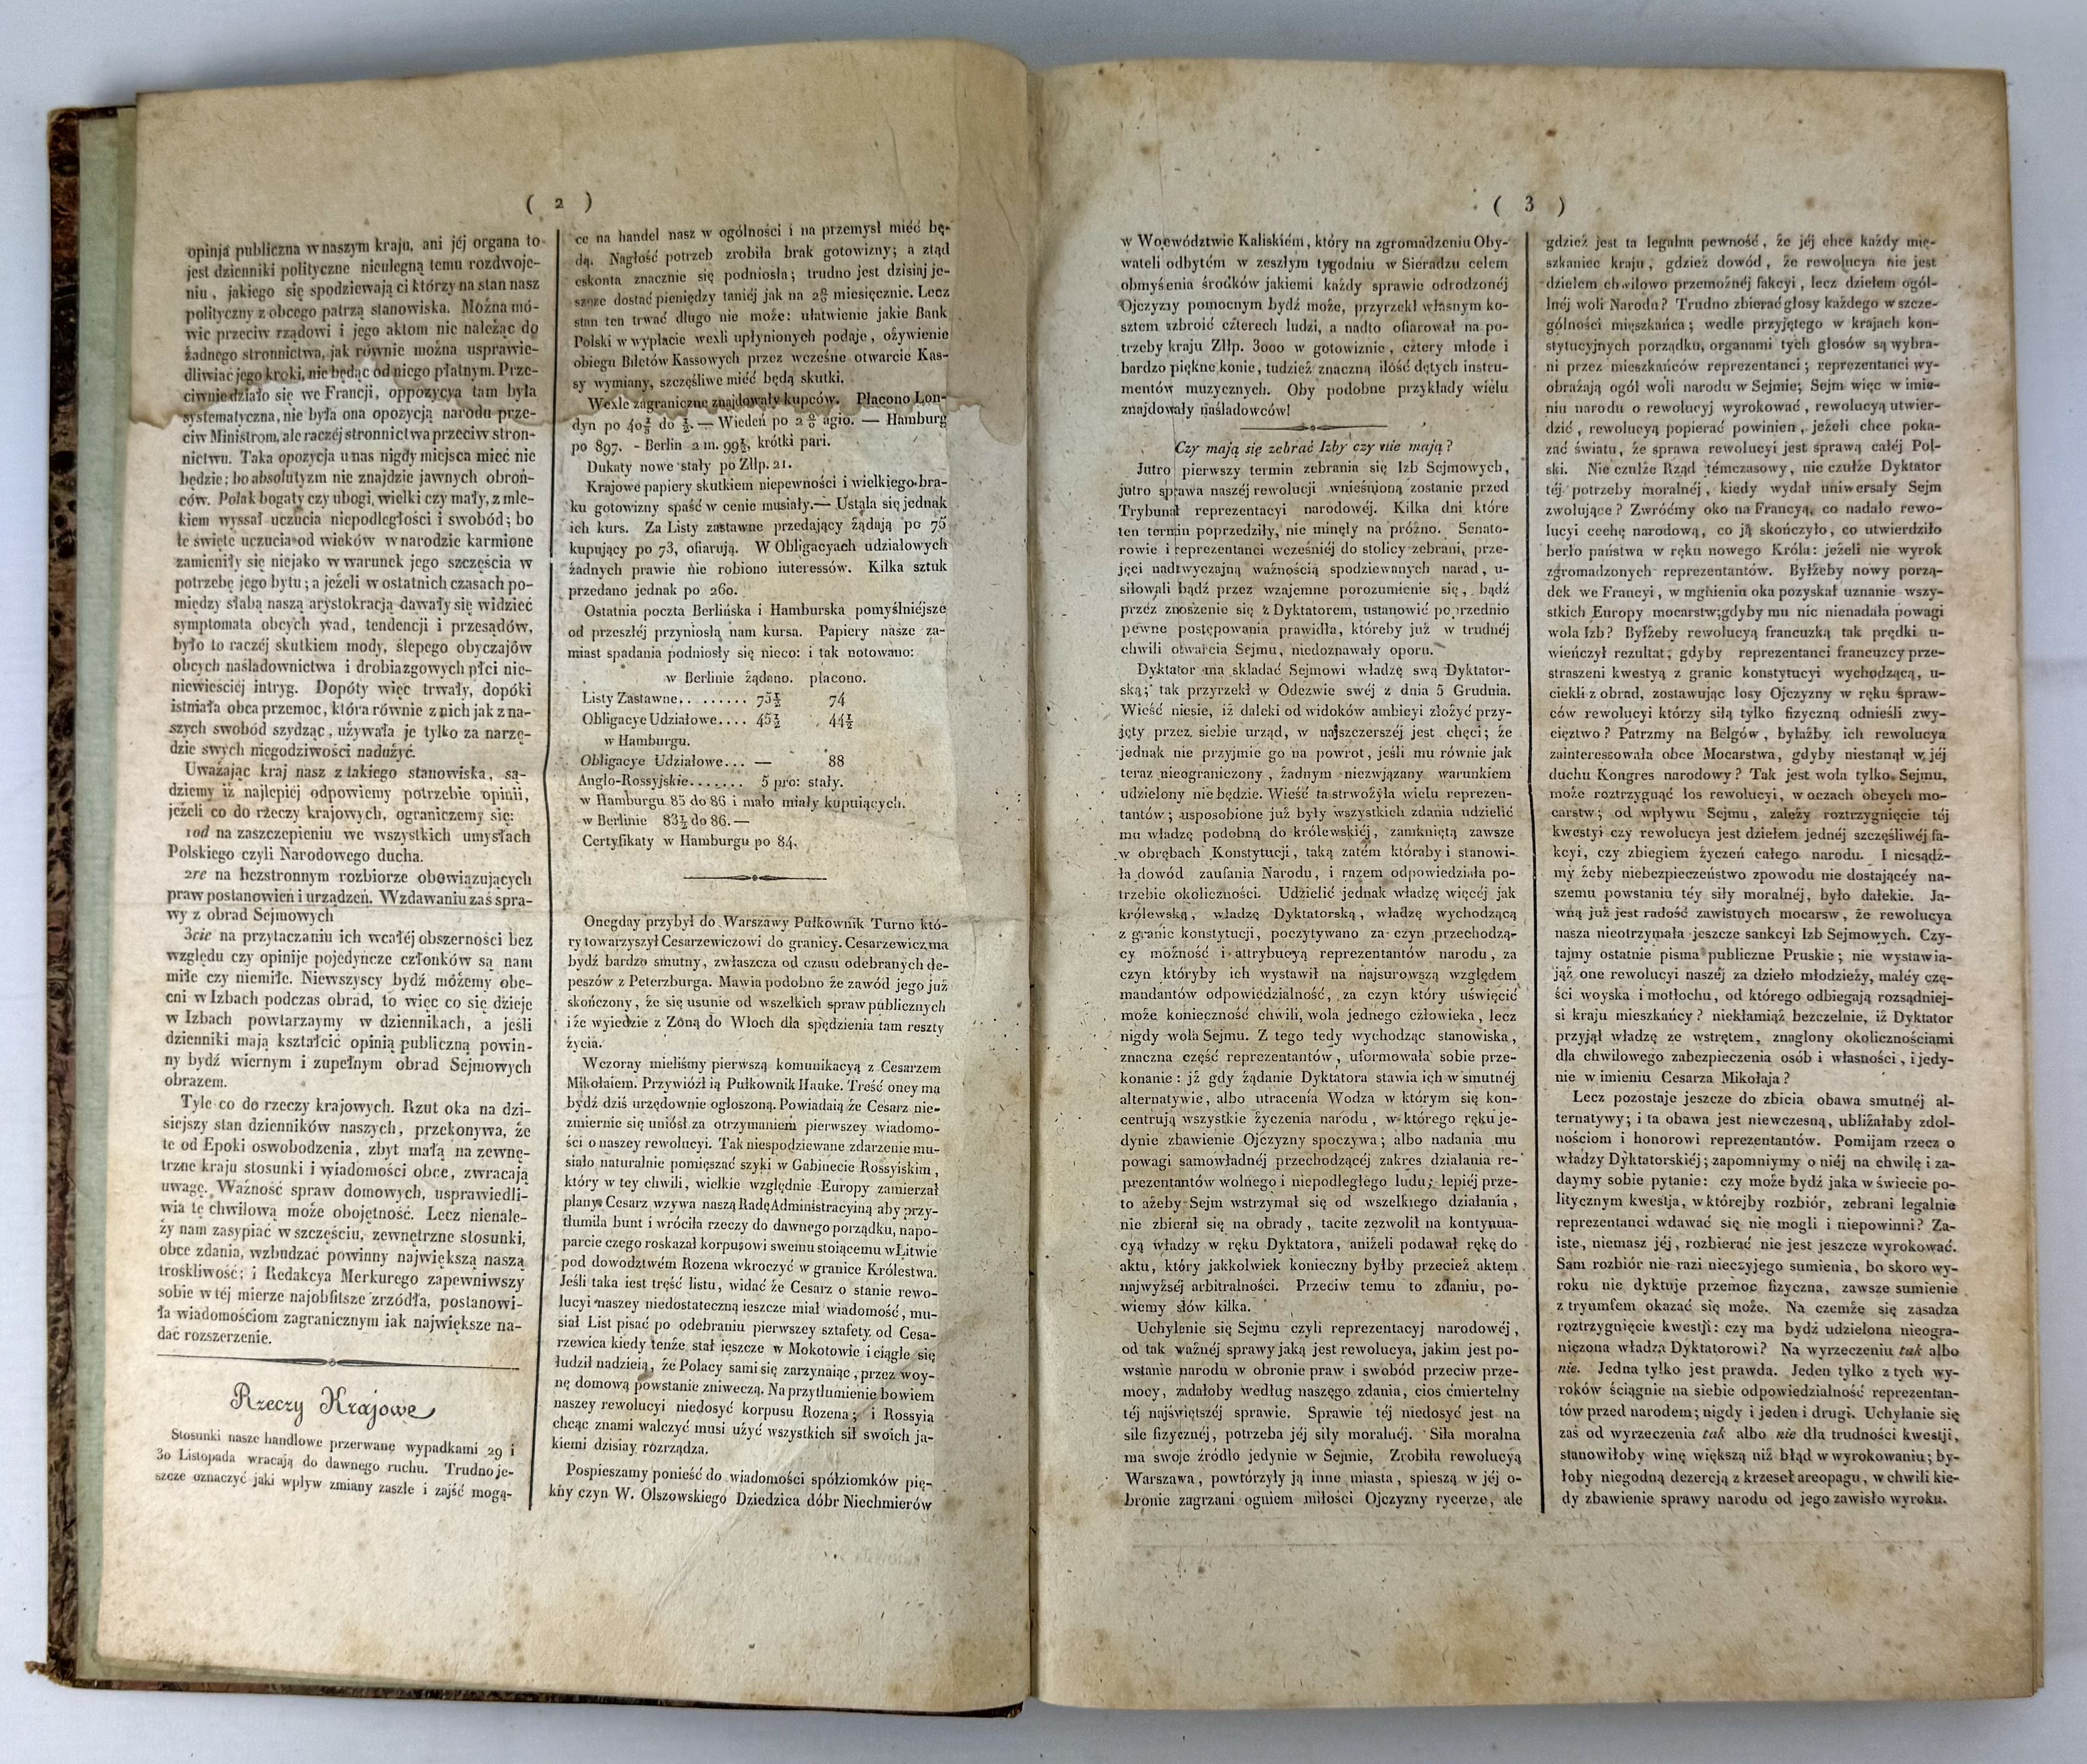 ( 2 )
opinja publiczna w naszym kraju, ani jéj organa to
jest dzienniki polityczne nieulegną temu rozdwoje-
niu, jakiego się spodziewają ci którzy na stan nasz
polityczny z obcego patrzą stanowiska. Można mó-
wić przeciw rządowi i jego aktom nie należąc do
żadnego stronnictwa, jak równie można usprawie-
dliwiać jego kroki, nie będąc od niego płatnym. Prze-
ciwnie działo się we Francji, oppozycya tam była
systematyczna, nie była ona opozycją narodu prze-
ciw Ministrom, ale raczéj stronnictwa przeciw stron-
nictwu. Taka opozycja u nas nigdy miejsca mieć nie
będzie; bo absolutyzm nie znajdzie jawnych obroń-
ców. Polak bogaty czy ubogi, wielki czy mały, z mle-
kiem wyssał uczucia niepodległości i swobód; bo
te święte uczucia od wieków w narodzie karmione
zamieniły się niejako w warunek jego szczęścia w
potrzebę jego bytu; a jeżeli w ostatnich czasach po-
między słabą naszą arystokracją dawały się widzieć
symptomata obcych wad, tendencji i przesądów,
było to raczéj skutkiem mody, ślepego obyczajów
obcych naśladownictwa i drobiazgowych płci nie-
niewieściéj intryg. Dopóty więc trwały, dopóki
istniała obca przemoc, która równie z nich jak z na-
szych swobód szydząc, używała je tylko za narzę-
dzie swych niegodziwości nadużyć.
Uważając kraj nasz z takiego stanowiska, są-
dziemy iż najlepiéj odpowiemy potrzebie opinii,
jeżeli co do rzeczy krajowych, ograniczemy się:
1od na zaszczepieniu we wszystkich umysłach
Polskiego czyli Narodowego ducha.
2re na bezstronnym rozbiorze obowiązujących
praw postanowień i urządzeń. Wzdawaniu zaś spra-
wy z obrad Sejmowych
3cie na przytaczaniu ich wcałéj obszerności bez
względu czy opinije pojedyncze członków są nam
miłe czy niemiłe. Niewszyscy bydź możemy obe-
cni w Izbach podczas obrad, to więc co się dzieje
w Izbach powtarzaymy w dziennikach, a jeśli
dzienniki mają kształcić opinią publiczną powin-
ny bydź wiernym i zupełnym obrad Sejmowych
obrazem.
Tyle co do rzeczy krajowych. Rzut oka na dzi-
siejszy stan dzienników naszych, przekonywa, że
te od Epoki oswobodzenia, zbyt małą na zewnę-
trzne kraju stosunki i wiadomości obce, zwracają
uwagę. Ważność spraw domowych, usprawiedli-
wia tę chwilową może obojętność. Lecz nienale-
ży nam zasypiać w szczęściu, zewnętrzne stosunki,
obce zdania, wzbudzać powinny największą naszą
troskliwość; i Redakcya Merkurego zapewniwszy
sobie w téj mierze najobfitsze zrzódła, postanowi-
ła wiadomościom zagranicznym iak największe na-
dać rozszerzenie.
Rzeczy Krajowe
Stosunki nasze handlowe przerwane wypadkami 29 i
30 Listopada wracają do dawnego ruchu. Trudno je-
szcze oznaczyć jaki wpływ zmiany zaszłe i zajść mogą-
ce na handel nasz w ogólności i na przemysł mieć bę-
dą. Nagłość potrzeb zrobiła brak gotowizny; a ztąd
eskonta znacznie się podniosła; trudno jest dzisiaj je-
szcze dostać pieniędzy taniéj jak na 2% miesięcznie. Lecz
stan ten trwać długo nie może: ułatwienie jakie Bank
Polski w wypłacie wexli upłynionych podaje, ożywienie
obiegu Biletów Kassowych przez wcześne otwarcie Kas-
sy wymiany, szczęśliwe mieć będą skutki.
Wexle zagraniczne znajdowały kupców. Płacono Lon-
dyn po do ½. — Wiedeń po 2 % agio. — Hamburg
po 897. - Berlin 2 m. krótki pari.
Dukaty nowe stały po Złlp. 21.
Krajowe papiery skutkiem niepewności i wielkiego bra-
ku gotowizny spaść w cenie musiały.— Ustala się jednak
ich kurs. Za Listy zastawne przedający żądają po 75
kupujący po 73, ofiarują. W Obligacyach udziałowych
żadnych prawie nie robiono interessów. Kilka sztuk
przedano jednak po 260.
Ostatnia poczta Berlińska i Hamburska pomyślniejsze
od przeszłéj przyniosła nam kursa. Papiery nasze za-
miast spadania podniosły się nieco: i tak notowano:
w Berlinie żądano. płacono.
Listy Zastawne. . ....... 75½ 74
Obligacye Udziałowe.... 45½ 44½
w Hamburgu.
Obligacye Udziałowe... — 88
Anglo-Rossyjskie....... 5 pro: stały.
w Hamburgu 85 do 86 i mało miały kupujących.
w Berlinie 83½ do 86. —
Certyfikaty w Hamburgu po 84.
Onegday przybył do Warszawy Pułkownik Turno któ-
ry towarzyszył Cesarzewiczowi do granicy. Cesarzewicz ma
bydź bardzo smutny, zwłaszcza od czasu odebranych de-
peszów z Peterzburga. Mawia podobno że zawód jego już
skończony, że się usunie od wszelkich spraw publicznych
i że wyiedzie z Żoną do Włoch dla spędzienia tam reszty
życia.
Wczoray mieliśmy pierwszą komunikacyą z Cesarzem
Mikołaiem. Przywiózł ią Pułkownik Hauke. Treść oney ma
bydź dziś urzędownie ogłoszoną. Powiadaią że Cesarz nie-
zmiernie się uniósł za otrzymaniem pierwszey wiadomo-
ści o naszey rewolucyi. Tak niespodziewane zdarzenie mu-
siało naturalnie pomięszać szyki w Gabinecie Rossyiskim,
który w tey chwili, wielkie względnie Europy zamierzał
plany. Cesarz wzywa naszą Radę Administracyiną aby przy-
tłumiła bunt i wróciła rzeczy do dawnego porządku, napo-
parcie czego roskazał korpusowi swemu stoiącemu w Litwie
pod dowodztwém Rozena wkroczyć w granice Królestwa.
Jeśli taka iest treść listu, widać że Cesarz o stanie rewo-
lucyi naszey niedostateczną ieszcze miał wiadomość, mu-
siał List pisać po odebraniu pierwszey sztafety od Cesa-
rzewica kiedy tenże stał ieszcze w Mokotowie i ciągle się
łudził nadzieią, że Polacy sami się zarzynaiąc, przez woy-
nę domową powstanie zniweczą. Na przytłumienie bowiem
naszey rewolucyi niedosyć korpusu Rozena; i Rossyia
chcąc znami walczyć musi użyć wszystkich sił swoich ja-
kiemi dzisiay rozrządza.
Pospieszamy ponieść do wiadomości spółziomków pię-
kny czyn W. Olszowskiego Dziedzica dóbr Niechmierów
( 3 )
w Województwie Kaliskiém, który na zgromadzeniu Oby-
wateli odbytém w zeszłym tygodniu w Sieradzu celem
obmyślenia środków jakiemi każdy sprawie odrodzonéj
Ojczyzny pomocnym bydź może, przyrzekł własnym ko-
sztem uzbroić czterech ludzi, a nadto ofiarował na po-
trzeby kraju Złlp. 3000 w gotowiznie, cztery młode i
bardzo piękne konie, tudzież znaczną ilość dętych instru-
mentów muzycznych. Oby podobne przykłady wielu
znajdowały naśladowców!
Czy mają się zebrać Izby czy nie mają?
Jutro pierwszy termin zebrania się Izb Sejmowych,
jutro sprawa naszéj rewolucji wnieśnioną zostanie przed
Trybunał reprezentacyi narodowéj. Kilka dni które
ten termin poprzedziły, nie minęły na próżno. Senato-
rowie i reprezentanci wcześniéj do stolicy zebrani, prze-
jęci nadzwyczajną ważnością spodziewanych narad, u-
siłowali bądź przez wzajemne porozumienie się, bądź
przez znoszenie się z Dyktatorem, ustanowić poprzednio
pewne postępowania prawidła, któreby już w trudnéj
chwili otwarcia Sejmu, niedoznawały oporu.
Dyktator ma składać Sejmowi władzę swą Dyktator-
ską; tak przyrzekł w Odezwie swéj z dnia 5 Grudnia.
Wieść niesie, iż daleki od widoków ambicyi złożyć przy-
jęty przez siebie urząd, w najszczerszéj jest chęci; że
jednak nie przyjmie go na powrót, jeśli mu równie jak
teraz nieograniczony, żadnym niezwjązany warunkiem
udzielony nie będzie. Wieść ta strwożyła wielu reprezen-
tantów; usposobione już były wszystkich zdania udzielić
mu władzę podobną do królewskiéj, zamkniętą zawsze
w obrębach Konstytucji, taką zatém któraby i stanowi-
ła dowód zaufania Narodu, i razem odpowiedziała po-
trzebie okoliczności. Udzielić jednak władzę więcéj jak
królewską, władzę Dyktatorską, władzę wychodzącą
z granic konstytucji, poczytywano za czyn przechodzą-
cy możność i attrybucyą reprezentantów narodu, za
czyn któryby ich wystawił na najsurowszą względem
mandantów odpowiedzialność, za czyn który uświęcić
może konieczność chwili, wola jednego człowieka, lecz
nigdy wola Sejmu. Z tego tedy wychodząc stanowiska,
znaczna część reprezentantów, uformowała sobie prze-
konanie: iż gdy żądanie Dyktatora stawia ich w smutnéj
alternatywie, albo utracenia Wodza w którym się kon-
centrują wszystkie życzenia narodu, w którego ręku je-
dynie zbawienie Ojczyzny spoczywa; albo nadania mu
powagi samowładnéj przechodzącéj zakres działania re-
prezentantów wolnego i niepodległego ludu; lepiéj prze-
to ażeby Sejm wstrzymał się od wszelkiego działania,
nie zbierał się na obrady, tacite zezwolił na kontynua-
cyą władzy w ręku Dyktatora, aniżeli podawał rękę do
aktu, który jakkolwiek konieczny byłby przecież aktem
najwyższéj arbitralności. Przeciw temu to zdaniu, po-
wiemy słów kilka.
Uchylenie się Sejmu czyli reprezentacyj narodowéj,
od tak ważnéj sprawy jaką jest rewolucya, jakim jest po-
wstanie narodu w obronie praw i swobód przeciw prze-
mocy, zadałoby według naszęgo zdania, cios ćmiertelny
téj najświętszéj sprawie. Sprawie téj niedosyć jest na
sile fizycznéj, potrzeba jéj siły moralnéj. Siła moralna
ma swoje źródło jedynie w Sejmie, Zrobiła rewolucyą
Warszawa, powtórzyły ją inne miasta, spieszą w jéj o-
bronie zagrzani ogniem miłości Ojczyzny rycerze, ale
gdzież jest ta legalna pewność, że jéj chce każdy mię-
szkaniec kraju, gdzież dowód, że rewolucya nie jest
dziełem chwilowo przemożnéj fakcyi, lecz dziełem ogól-
lnéj woli Narodu? Trudno zbierać głosy każdego w szcze-
gólności mięszkańca; wedle przyjętego w krajach kon-
stytucyjnych porządku, organami tych głosów są wybra-
ni przez mieszkańców reprezentanci; reprezentanci wy-
obrażają ogół woli narodu w Sejmie; Sejm więc w imie-
niu narodu o rewolucyj wyrokować, rewolucyą utwier-
dzić, rewolucyą popierać powinien, jeżeli chce poka-
zać światu, że sprawa rewolucyi jest sprawą całéj Pol-
ski. Nie czułże Rząd témczasowy, nie czułże Dyktator
téj potrzeby moralnéj, kiedy wydał uniwersały Sejm
zwołujące? Zwróćmy oko na Francyą, co nadało rewo-
lucyi cechę narodową, co ją skończyło, co utwierdziło
berło państwa w ręku nowego Króla: jeżeli nie wyrok
zgromadzonych reprezentantów. Byłżeby nowy porzą-
dek we Francyi, w mgnieniu oka pozyskał uznanie wszy-
stkich Europy mocarstw; gdyby mu nic nienadała powagi
wola Izb? Byłżeby rewolucyą francuzką tak prędki u-
wieńczył rezultat, gdyby reprezentanci francuzcy prze-
straszeni kwestyą z granic konstytucyi wychodzącą, u-
ciekli z obrad, zostawując losy Ojczyzny w ręku spraw-
ców rewolucyi którzy siłą tylko fizyczną odnieśli zwy-
cięztwo? Patrzmy na Belgów, byłażby ich rewolucya
zainteressowała obce Mocarstwa, gdyby niestanął w jéj
duchu Kongres narodowy? Tak jest wola tylko Sejmu,
może roztrzygnąć los rewolucyi, w oczach obcych mo-
carstw; od wpływu Sejmu, zależy roztrzygnięcie téj
kwestyi czy rewolucya jest dziełem jednéj szczęśliwéj fa-
kcyi, czy zbiegiem życzeń całego narodu. I niesądź-
my żeby niebezpieczeństwo zpowodu nie dostającéy na-
szemu powstaniu téy siły moralnéj, było dalekie. Ja-
wną już jest radość zawistnych mocarsw, że rewolucya
nasza nieotrzymała jeszcze sankcyi Izb Sejmowych. Czy-
tajmy ostatnie pisma publiczne Pruskie; nie wystawia-
jąż one rewolucyi naszéj za dzieło młodzieży, maléy czę-
ści woyska i motłochu, od którego odbiegają rozsądniej-
si kraju mieszkańcy? niekłamiąż bezczelnie, iż Dyktator
przyjął władzę ze wstrętem, znaglony okolicznościami
dla chwilowego zabezpieczenia osób i własności, i jedy-
nie w imieniu Cesarza Mikołaja?
Lecz pozostaje jeszcze do zbicia obawa smutnéj al-
ternatywy; i ta obawa jest niewczesną, ubliżałaby zdol-
nościom i honorowi reprezentantów. Pomijam rzecz o
władzy Dyktatorskiéj; zapomniymy o niéj na chwilę i za-
daymy sobie pytanie: czy może bydź jaka w świecie po-
litycznym kwestja, w którejby rozbiór, zebrani legalnie
reprezentanci wdawać się nie mogli i niepowinni? Za-
iste, niemasz jéj, rozbierać nie jest jeszcze wyrokować.
Sam rozbiór nie razi nieczyjego sumienia, bo skoro wy-
roku nie dyktuje przemoc fizyczna, zawsze sumienie
z tryumfem okazać się może. Na czemże się zasadza
roztrzygnięcie kwestji: czy ma bydź udzielona nieogra-
niczona władza Dyktatorowi? Na wyrzeczeniu tak albo
nie. Jedna tylko jest prawda. Jeden tylko z tych wy-
roków ściągnie na siebie odpowiedzialność reprezentan-
tów przed narodem; nigdy i jeden i drugi. Uchylanie się
zaś od wyrzeczenia tak albo nie dla trudności kwestji,
stanowiłoby winę większą niż błąd w wyrokowaniu; by-
łoby niegodną dezercją z krzeseł areopagu, w chwili kie-
dy zbawienie sprawy narodu od jego zawisło wyroku.